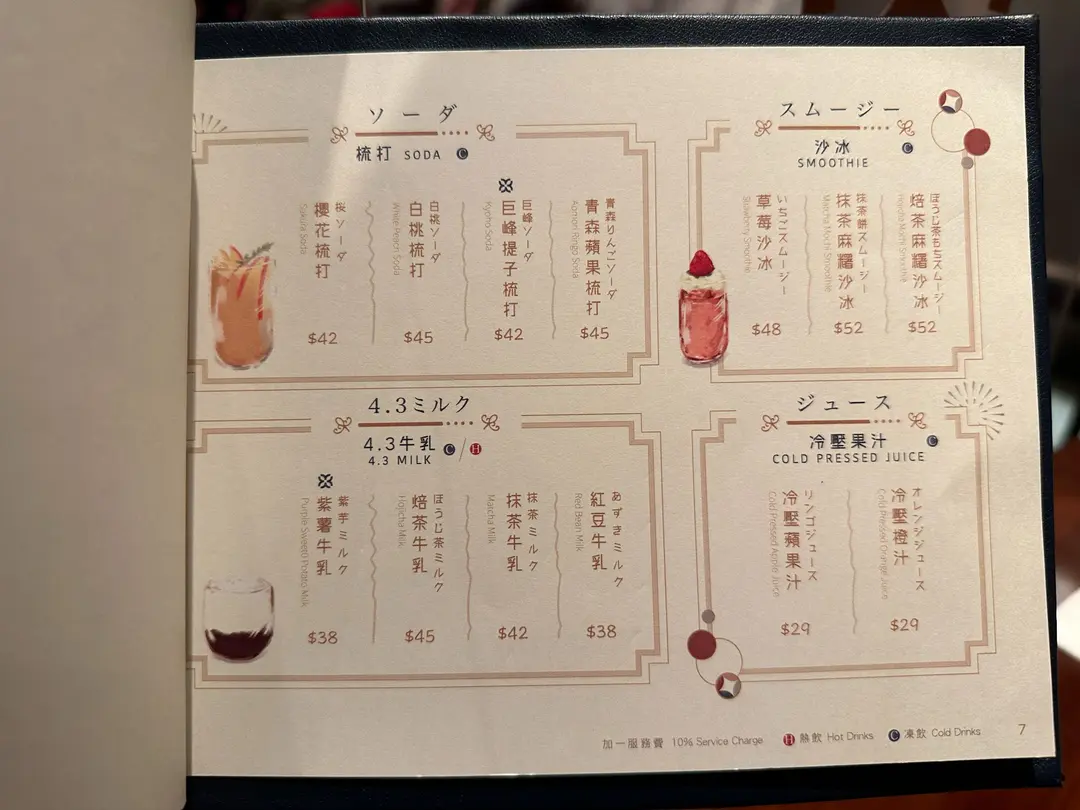 ソーダ
梳打 SODA C
桜 ソーダ
櫻花梳打
Sakura Soda
$42
白桃ソーダ
白桃梳打
White Peach Soda
$45
巨峰ソーダ
巨峰提子梳打
Kyoho Soda
$42
青森りんごソーダ
青森蘋果梳打
Aomori Ringo Soda
$45
スムージー
沙冰 C
SMOOTHIE
いちごスムージー
草莓沙冰
Strawberry Smoothie
$48
抹茶餅スムージー
抹茶麻糬沙冰
Matcha Mochi Smoothie
$52
ほうじ茶もちスムージー
焙茶麻糬沙冰
Hojicha Mochi Smoothie
$52
4.3ミルク
4.3牛乳 C/H
4.3 MILK
紫芋ミルク
紫薯牛乳
Purple Sweet Potato Milk
$38
ほうじ茶ミルク
焙茶牛乳
Hojicha Milk
$45
抹茶ミルク
抹茶牛乳
Matcha Milk
$42
あずきミルク
紅豆牛乳
Red Bean Milk
$38
ジュース
冷壓果汁 C
COLD PRESSED JUICE
リンゴジュース
冷壓蘋果汁
Cold Pressed Apple Juice
$29
オレンジジュース
冷壓橙汁
Cold Pressed Orange Juice
$29
加一服務費 10% Service Charge H 熱飲 Hot Drinks C 凍飲 Cold Drinks
7